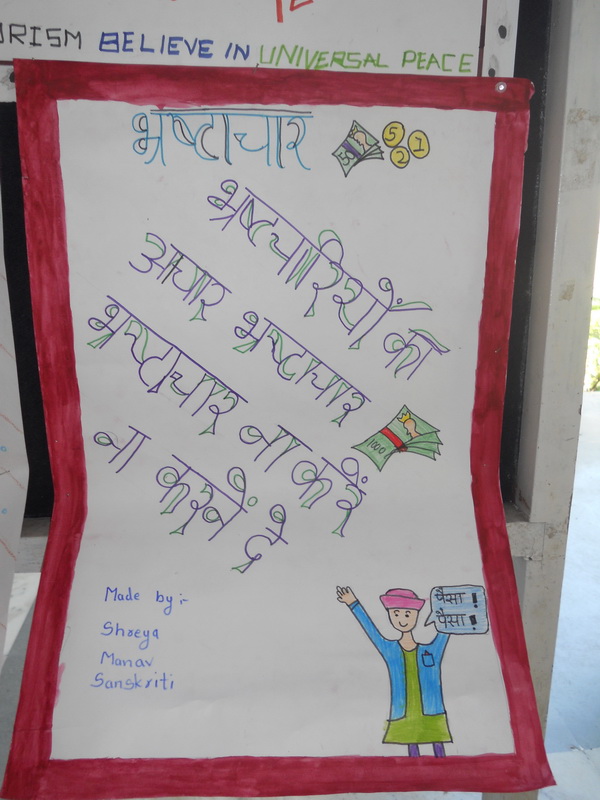 ORISM BELIEVE IN UNIVERSAL PEACE
भ्रष्टाचार
50
5
2
1
भ्रष्टचारियों का
आचार भ्रष्टाचार
भ्रष्टाचार ना करें
ना करनें दे
1000
पैसा !
पैसा !
Made by :-
Shreya
Manav
Sanskriti